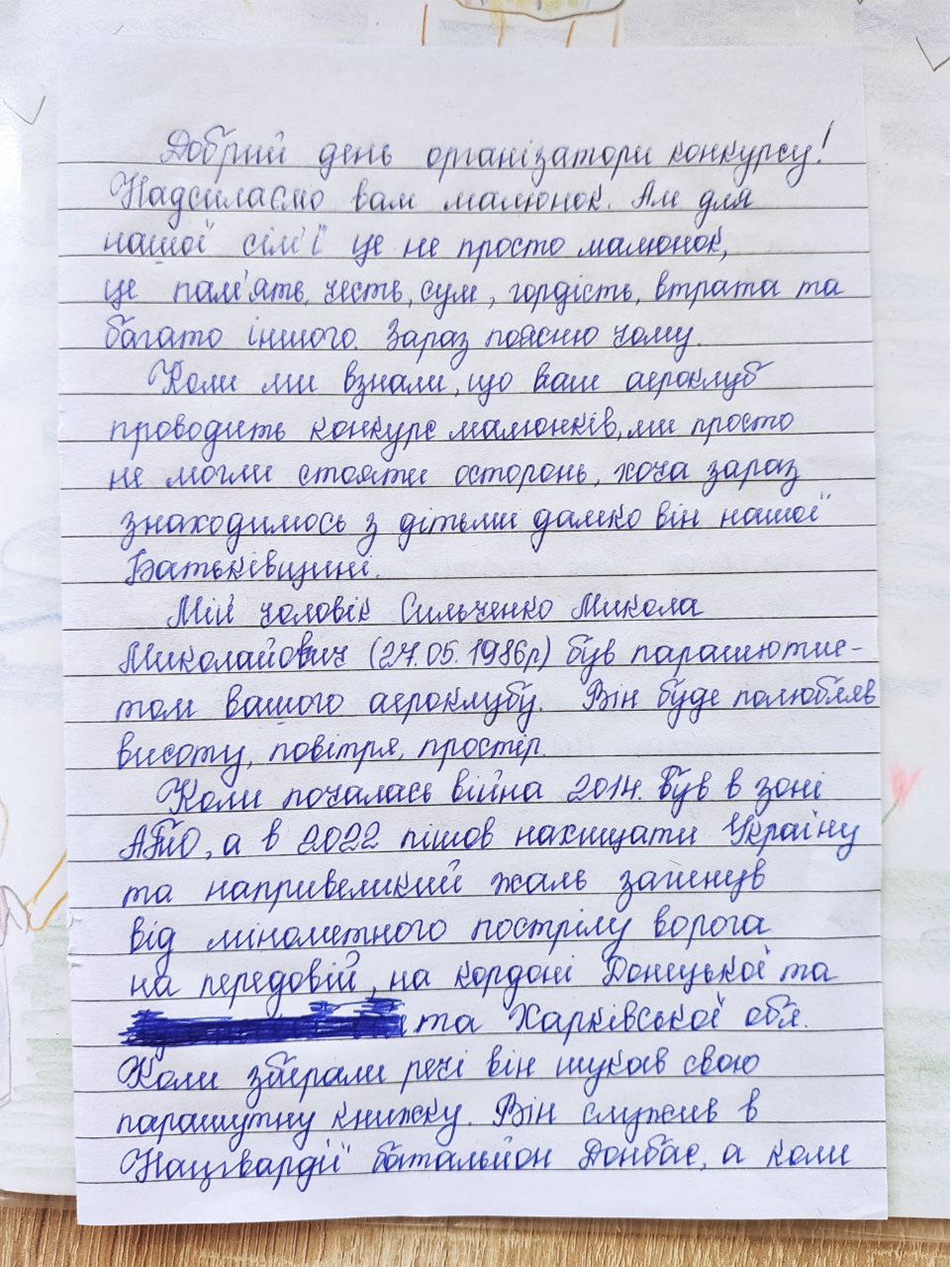 Добрий день організатори конкурсу!
Надсилаємо вам малюнок. Ал для
нашої сім'ї це не просто малюнок,
це пам'ять, честь, сум, гордість, втрата та
багато іншого. Зараз поясню чому.
Коли ми взнали, що ваш аероклуб
проводить конкурс малюнків, ми просто
не могли стояти осторонь, хоча зараз
знаходимось з дітьми далеко він нашої
Батьківщині.
Мій чоловік Сильченко Микола
Миколайович (27.05.1986р) був парашютис-
том вашого аероклубу. Він дуде полюбляв
висоту, повітря, простір.
Коли почалась війна 2014. був в зоні
АТО, а в 2022 пішов нахищати Україну
та напривеликий жаль загинув
від мінометного пострілу ворога
на передовій, на кордоні Донецької та
та Харківської обл.
Коли збирали речі він шукав свою
парашутну книжку. Він служив в
Нацгвардії батальйон Донбас, а коли